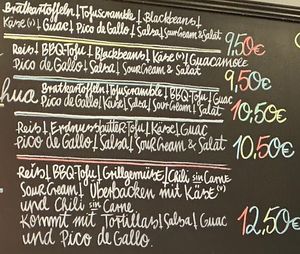 Bratkartoffeln | Tofuscramble | Blackbeans |
Käse (v) | Guac | Pico de Gallo | Salsa | Sour Cream & Salat 9,50€
Reis | BBQ-Tofu | Blackbeans | Käse (v) | Guacamole
Pico de Gallo | Salsa | Sour Cream & Salat 9,50€
hua Bratkartoffeln | Tofuscramble | BBQ-Tofu | Guac
Pico de Gallo | Käse | Salsa | Sour Cream | Salat 10,50€
Reis | Erdnussbutter Tofu | Käse | Guac
Pico de Gallo | Salsa | Sour Cream & Salat 10,50€
Reis | BBQ-Tofu | Grillgemüse | Chili sin Carne
Sour Cream | Überbacken mit Käse (v)
und Chili sin Carne
Kommt mit Tortillas | Salsa | Guac
und Pico de Gallo. 12,50€